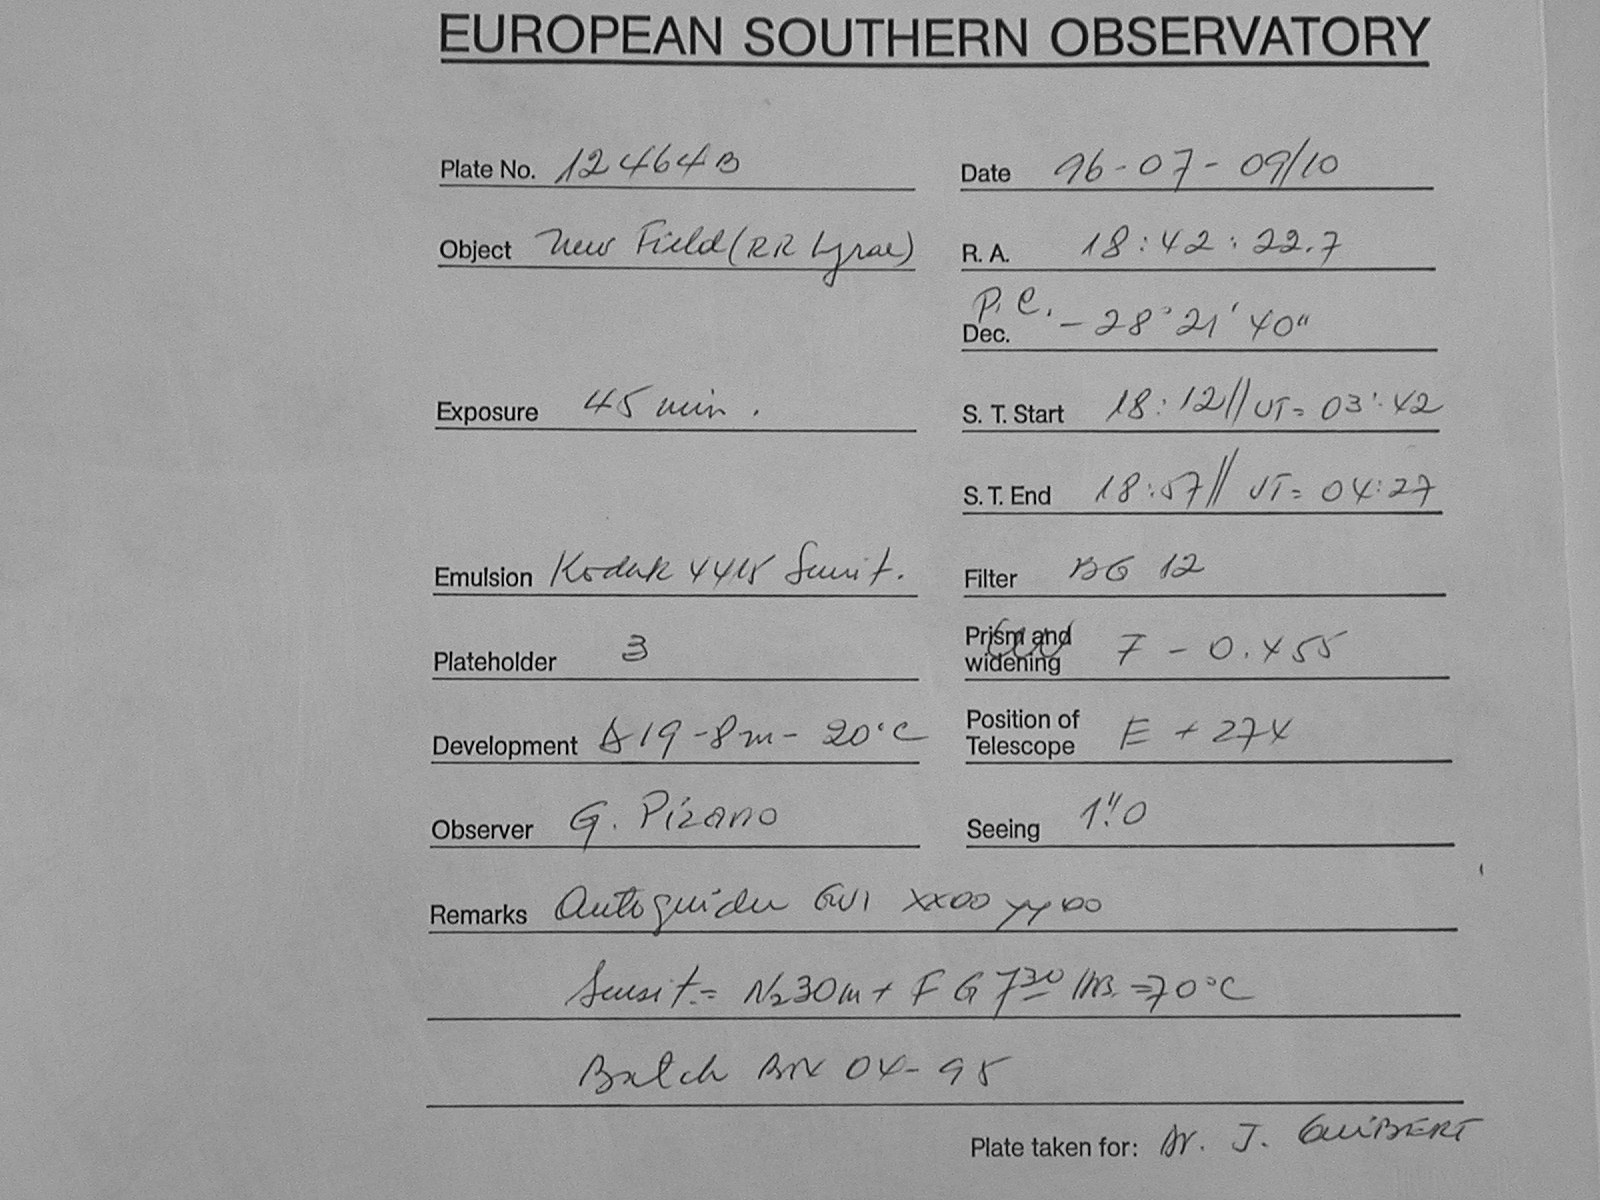 EUROPEAN SOUTHERN OBSERVATORY
Plate No. 12464B
Date 96-07-09/10
Object New Field (RR Lyrae)
R. A. 18:42:22.7
P.C.
Dec. -28°21'40"
Exposure 45 min.
S. T. Start 18:12// UT= 03:42
S. T. End 18:57// UT= 04:27
Emulsion Kodak 4415 Sensit.
Filter BG 12
Plateholder 3
Prism and widening 7 - 0.455
Development D19-8m-20°C
Position of Telescope E + 274
Observer G. Pizarro
Seeing 1".0
Remarks Autoguider GV1 XX00 YY00
Sensit.= N2 30m + FG 7 30 HRS. = 70°C
Batch 04-95
Plate taken for: Dr. J. GUIBERT